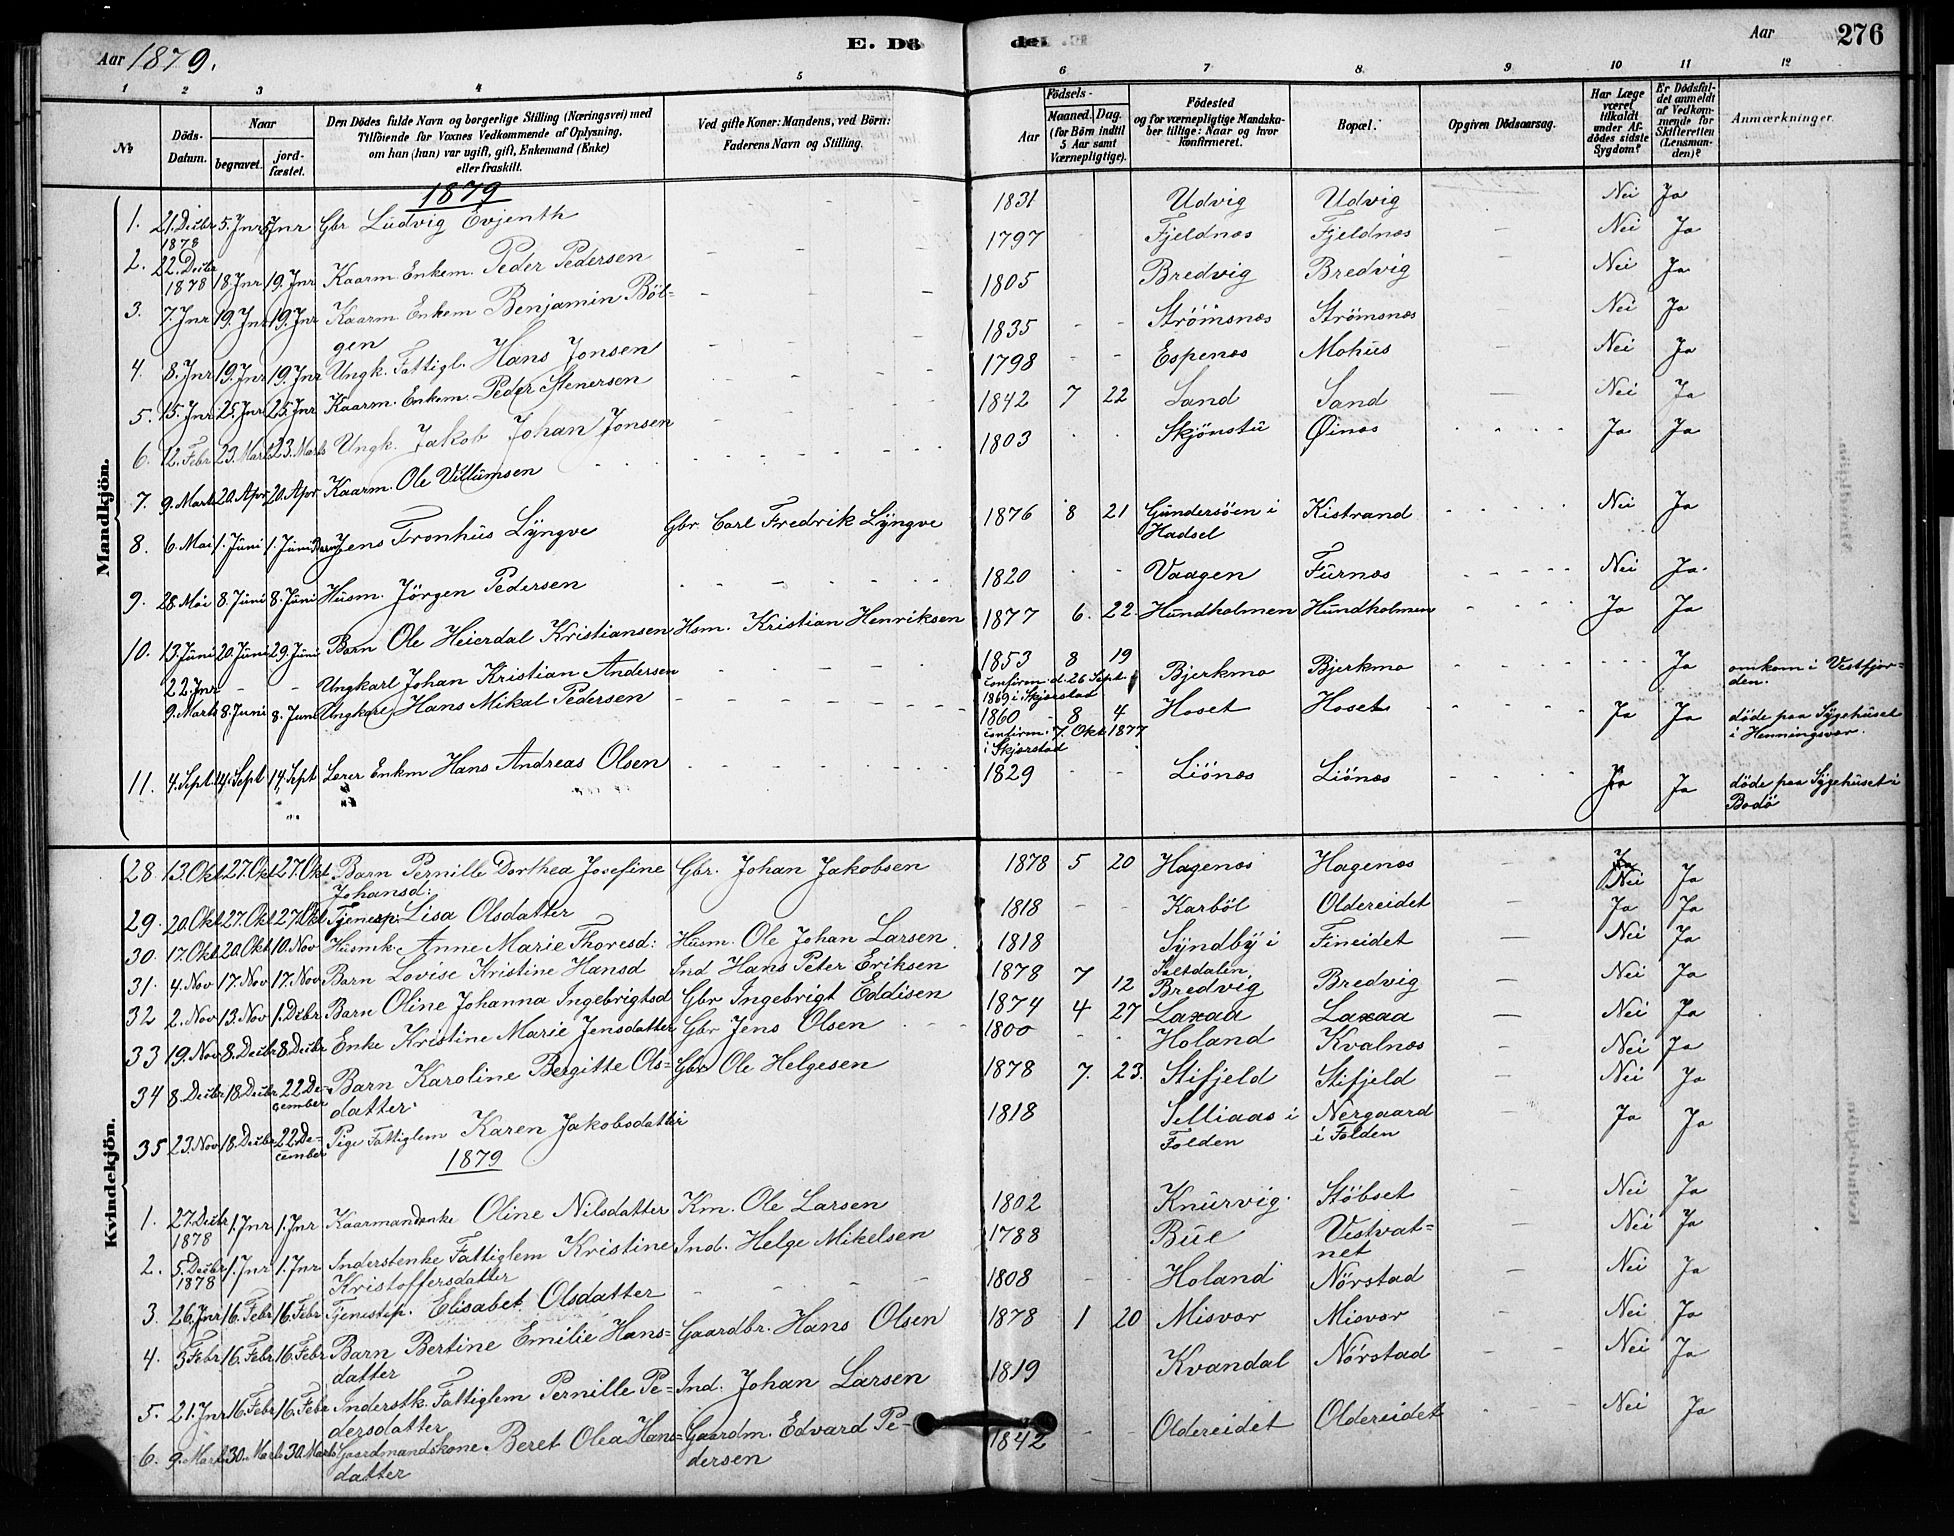 Aar 1879.
E. Dö
de.
Aar
276
1 2 3 4 5 6 7 8. 9. 10 11 12
No
Döds-Datum.
Naar
begravet.
jord-fæstet.
Den Dödes fulde Navn og borgerlige Stilling (Næringsvei) med
Tilföiende for Voxnes Vedkommende af Oplysning,
om han (hun) var ugift, gift, Enkemand (Enke)
eller fraskilt.
Ved gifte Koner: Mandens, ved Börn:
Faderens Navn og Stilling.
Födsels-
Aar
Maaned. Dag.
(for Börn indtil
5 Aar samt
Værnepligtige).
Födested
og for værnepligtige Mandska-
ber tillige: Naar og hvor
konfirmeret.
Bopæl.
Opgiven Dödsaarsag.
Har Læge
været
tilkaldt
under Af-
dödes sidste
Sygdom?
Er Dödsfal-
det anmeldt
af Vedkom-
mende for
Skifteretten
(Lensman-
den)?
Anmærkninger.
Mandkjön.
1879
1. 21. Decbr 1878 5. Jnr 5 Jnr Gbr Ludvig Evjenth 1831 Udvig Udvig Nei Ja
2. 22. Decbr 1878 18. Jnr 19. Jnr Kaarm. Enkem. Peder Pedersen 1797 Fjeldnæs Fjeldnæs Nei Ja
3. 7. Jnr 19. Jnr 19. Jnr Kaarm. Enkem Benjamin Böl-
gen 1805 Bredvig Bredvig Nei Ja
4. 8. Jnr 19. Jnr 19. Jnr Ungk. Fattigl. Hans Jonsen 1835 Strömsnæs Strömsnæs Nei Ja
5. 15. Jnr 25. Jnr 25. Jnr Kaarm. Enkem. Peder Stenersen 1798 Espenæs Mohus Nei Ja
6. 12. Febr 23. Marts 23. Marts Ungk. Jakob Johan Jonsen 1842 7 22 Sand Sand Nei Ja
7. 9. Marts 20. Apr 20. Apr Kaarm. Ole Villumsen 1803 Skjönstu Øinæs Ja Ja
8. 6. Mai 1. Juni 1. Juni Barn Jens Tronhus Lyngve Gbr. Carl Fredrik Lyngve 1876 8 21 Gundersöen i
Hadsel Kistrand Nei Ja
9. 28. Mai 8. Juni 8. Juni Husm. Jörgen Pedersen 1820 Vaagen Furnæs Nei Ja.
10. 13. Juni 20. Juni 29. Juni Barn Ole Heierdal Kristiansen Hsm. Kristian Henriksen 1877 6. 22. Hundholmen Hundholmen Ja Ja
22. Jnr - - Ungkarl Johan Kristian Andersen 1853 8 19
confirm. d. 26 Sept.
1869 i Skjerstad Bjerkmo Bjerkmo Ja omkom i Vestfjor-
den.
9. Marts 8. Juni 8. Juni Ungkarl Hans Mikal Pedersen 1860 8 4
confirm. 7. Okt 1877
i Skjerstad Hoset Hoset Ja Ja döde paa Sygehuset
i Henningsvær.
11. 4. Sept 14. Sept 14. Sept Lærer Enkm Hans Andreas Olsen 1829 Liönæs Liönæs Ja Ja döde paa Sygehuset i
Bodö
Kvindekjön.
28. 13. Okt 27. Okt 27. Okt Barn Pernille Dorthea Josefine
Johansd: Gbr. Johan Jakobsen 1878 5 20 Hagenæs Hagenæs Nei Ja
29. 20. Okt 27. Okt 27. Okt Tjenesp: Lisa Olsdatter 1818 Karböl Oldereidet Ja Ja
30. 17. Okt 20. Okt 10. Nov Husmk. Anne Marie Thoresd: Husm. Ole Johan Larsen 1818 Syndby i
Saltdalen, Fineidet Nei Ja
31. 4. Nov 17. Nov 17. Nov Barn Lovise Kristine Hansd Ind Hans Peter Eriksen 1878 7 12 Bredvig Bredvig Nei Ja
32 2. Nov 13. Nov 1. Decbr Barn Oline Johanna Ingebrigtsd Gbr Ingebrigt Eddisen 1874 4 27 Laxaa Laxaa Nei Ja
33 19. Nov 8. Decbr 8. Decbr Enke Kristine Marie Jensdatter Gbr Jens Olsen 1800 Holand Kvalnæs Nei Ja
34 8. Decbr 18. Decbr 22. De-
cember Barn Karoline Bergitte Ols-
datter Gbr Ole Helgesen 1878 7. 23. Stifjeld Stifjeld Nei Ja
35 23. Nov 18. Decbr 22. De-
cember Pige Fattiglem Karen Jakobsdatter 1818 Selliaas i
Folden Nergaard
i Folden Ja Ja
1879
1. 27. Decbr 1878 1. Jnr 1. Jnr Kaarmandenke Oline Nilsdatter Km. Ole Larsen 1802 Knurvig Stöbset Nei Ja
2. 5. Decbr 1878 1. Jnr 1. Jnr Inderstenke Fattiglem Kristine
Kristoffersdatter Ind. Helge Mikelsen 1788 Bue Vestvat-
net Nei Ja
3. 26. Jnr 16. Febr 16. Febr Tjenestep. Elisabet Olsdatter 1808 Holand Nörstad Nei Ja
4. 3 Febr 16. Febr 16. Febr Barn Bertine Emilie Hans-
datter Gaardbr. Hans Olsen 1878 1 20 Misvær Misvær Nei Ja
5. 21. Jnr 16. Febr 16. Febr Inderstk. Fattiglem Pernille Pe-
dersdatter Ind. Johan Larsen 1819 Kvandal Nörstad Nei Ja
6. 9. Marts 30. Marts 30. Marts Gaardmandskone Beret Olea Hans-
datter Gaardm. Edvard Pe-
dersen 1842 Oldereidet Oldereidet Nei Ja